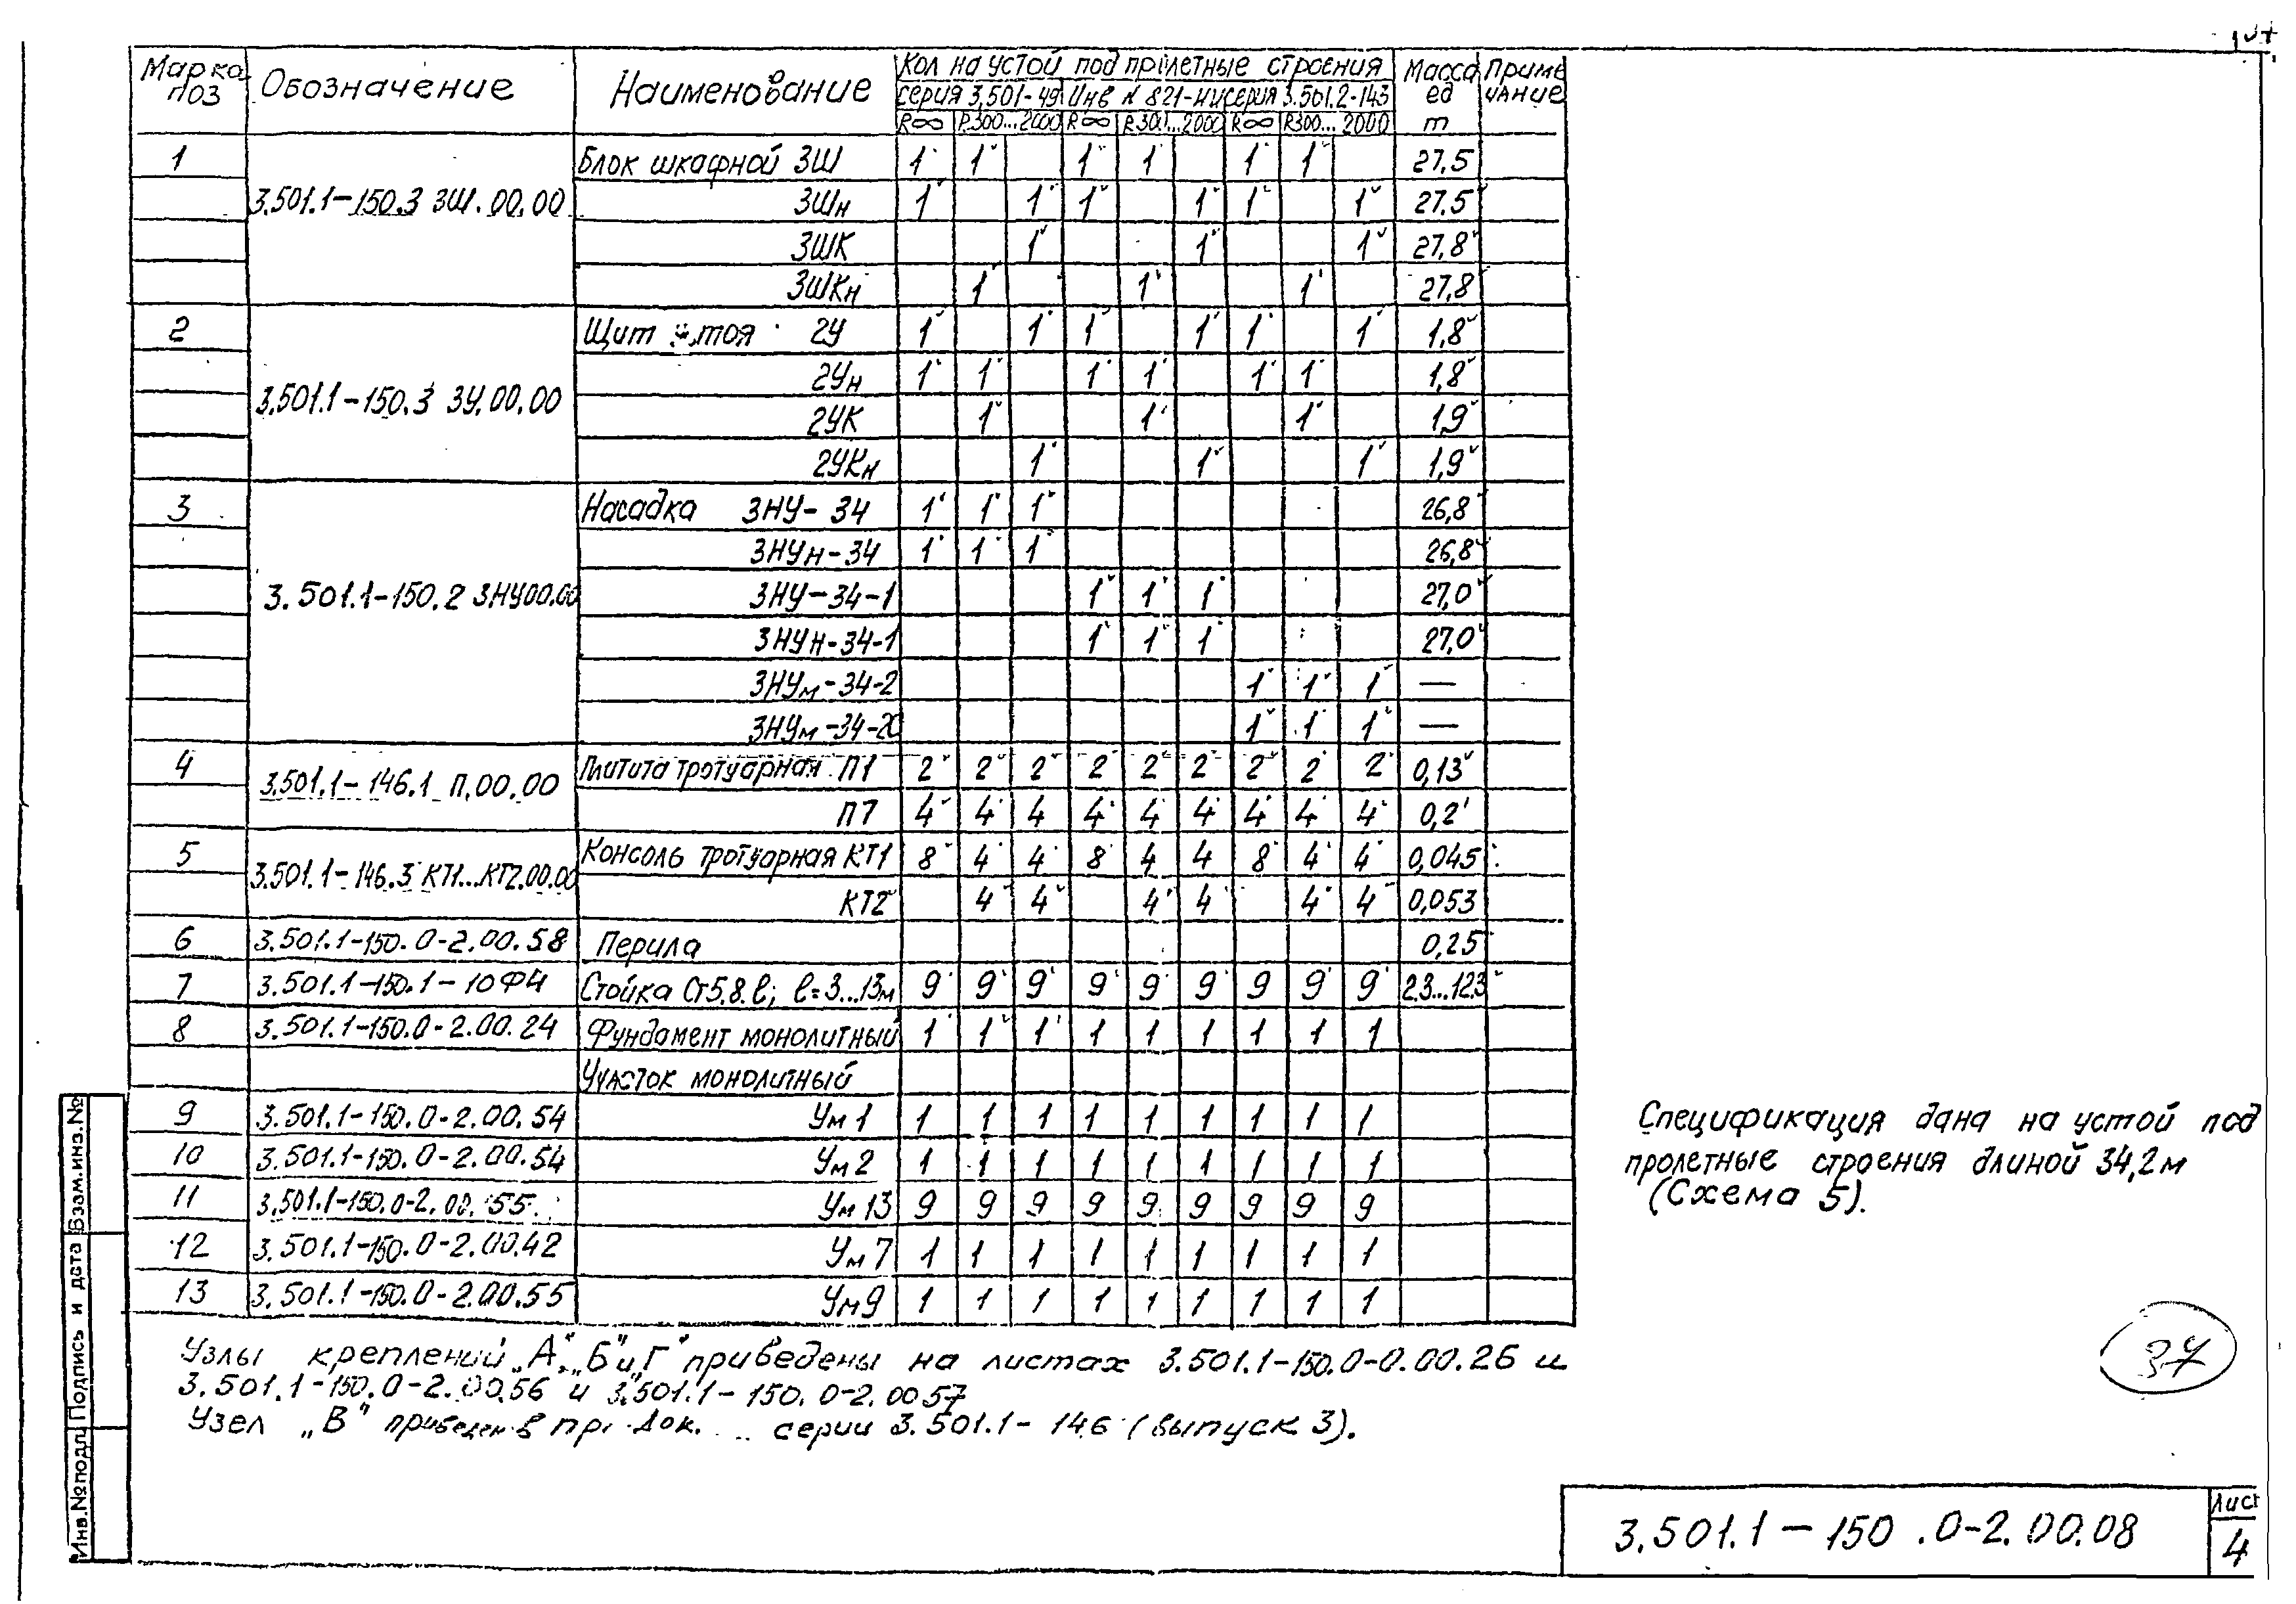 Марка поз | Обозначение | Наименование | Кол на устой под пролетные строения | Масса ед т | Примечание
серия 3.501-49 | Инв № 821-И | серия 3.501.2-143
R∞ | R300...2000 | R∞ | R300...2000 | R∞ | R300... 2000
1 | 3.501.1-150.3 3Ш.00.00 | Блок шкафной 3Ш | 1 | 1 | | 1 | 1 | | 1 | 1 | | 27,5
3Шн | 1 | | 1 | 1 | | 1 | 1 | | 1 | 27.5
3ШК | | | 1 | | | 1 | | | 1 | 27,8
3ШКн | | 1 | | | 1 | | | 1 | | 27,8
2 | 3.501.1-150.3 3У.00.00 | Щит устоя 2У | 1 | | 1 | 1 | | 1 | 1 | | 1 | 1,8
2Ун | 1 | 1 | | 1 | 1 | | 1 | 1 | | 1,8
2УК | | 1 | | | 1 | | | 1 | | 1,9
2УКн | | | 1 | | | 1 | | | 1 | 1,9
3 | 3.501.1-150.2 3НУ00.00 | Насадка 3НУ-34 | 1 | 1 | 1 | | | | | | | 26,8
3НУн-34 | 1 | 1 | 1 | | | | | | | 26,8
3НУ-34-1 | | | | 1 | 1 | 1 | | | | 27,0
3НУН-34-1 | | | | 1 | 1 | 1 | | | | 27,0
3НУм-34-2 | | | | | | | 1 | 1 | 1 | —
3НУм-34-2 | | | | | | | 1 | 1 | 1 | —
4 | 3.501.1-146.1 П.00.00 | тротуарная П1 | 2 | 2 | 2 | 2 | 2 | 2 | 2 | 2 | 2 | 0,13
П7 | 4 | 4 | 4 | 4 | 4 | 4 | 4 | 4 | 4 | 0,2
5 | 3.501.1-146.3 КТ1...КТ2.00.00 | Консоль тротуарная КТ1 | 8 | 4 | 4 | 8 | 4 | 4 | 8 | 4 | 4 | 0,045
КТ2 | | 4 | 4 | | 4 | 4 | | 4 | 4 | 0,053
6 | 3.501.1-150.0-2.00.58 | Перила | | | | | | | | | | 0,25
7 | 3.501.1-150.1-10Ф4 | Стойка Ст5.8.l; l=3...13м | 9 | 9 | 9 | 9 | 9 | 9 | 9 | 9 | 9 | 2.3...12.3
8 | 3.501.1-150.0-2.00.24 | Фундамент монолитный | 1 | 1 | 1 | 1 | 1 | 1 | 1 | 1 | 1
Участок монолитный
9 | 3.501.1-150.0-2.00.54 | Ум1 | 1 | 1 | 1 | 1 | 1 | 1 | 1 | 1 | 1
10 | 3.501.1-150.0-2.00.54 | Ум2 | 1 | 1 | 1 | 1 | 1 | 1 | 1 | 1 | 1
11 | 3.501.1-150.0-2.00.55 | Ум13 | 9 | 9 | 9 | 9 | 9 | 9 | 9 | 9 | 9
12 | 3.501.1-150.0-2.00.42 | Ум7 | 1 | 1 | 1 | 1 | 1 | 1 | 1 | 1 | 1
13 | 3.501.1-150.0-2.00.55 | Ум9 | 1 | 1 | 1 | 1 | 1 | 1 | 1 | 1 | 1
Узлы креплений „А", „Б" и „Г" приведены на листах 3.501.1-150.0-0.00.26 и
3.501.1-150.0-2.00.56 и 3.501.1-150.0-2.0057
Узел „В" приведен в док. серии 3.501.1-146 (выпуск 3).
Спецификация дана на устой под
пролетные строения длиной 34,2м
(Схема 5).
37
Инв.№подл Подпись и дата Взам.инв.№
3.501.1-150.0-2.00.08
Лист
4